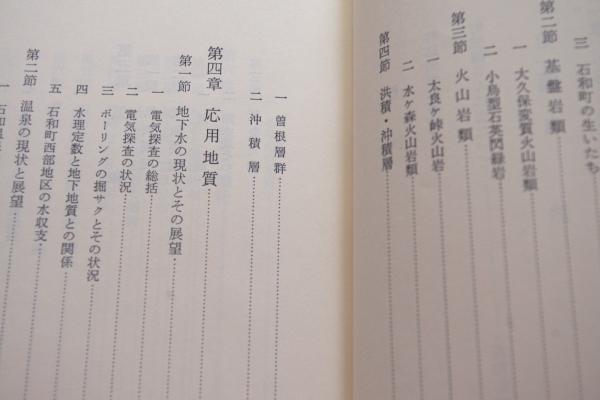 三 石和町の生いたち
第二節 基盤岩類
一 大久保変質火山岩類
二 小烏型石英閃緑岩
第三節 火山岩類
一 太良ケ峠火山岩
二 水ケ森火山岩類
第四節 洪積・沖積層
一 曽根層群
二 沖積層
第四章 応用地質
第一節 地下水の現状とその展望
一 電気探査の総括
二 電気探査の状況
三 ボーリングの掘サクとその状況
四 水理定数と地下地質との関係
五 石和町西部地区の水収支
第二節 温泉の現状と展望
一 石和温泉